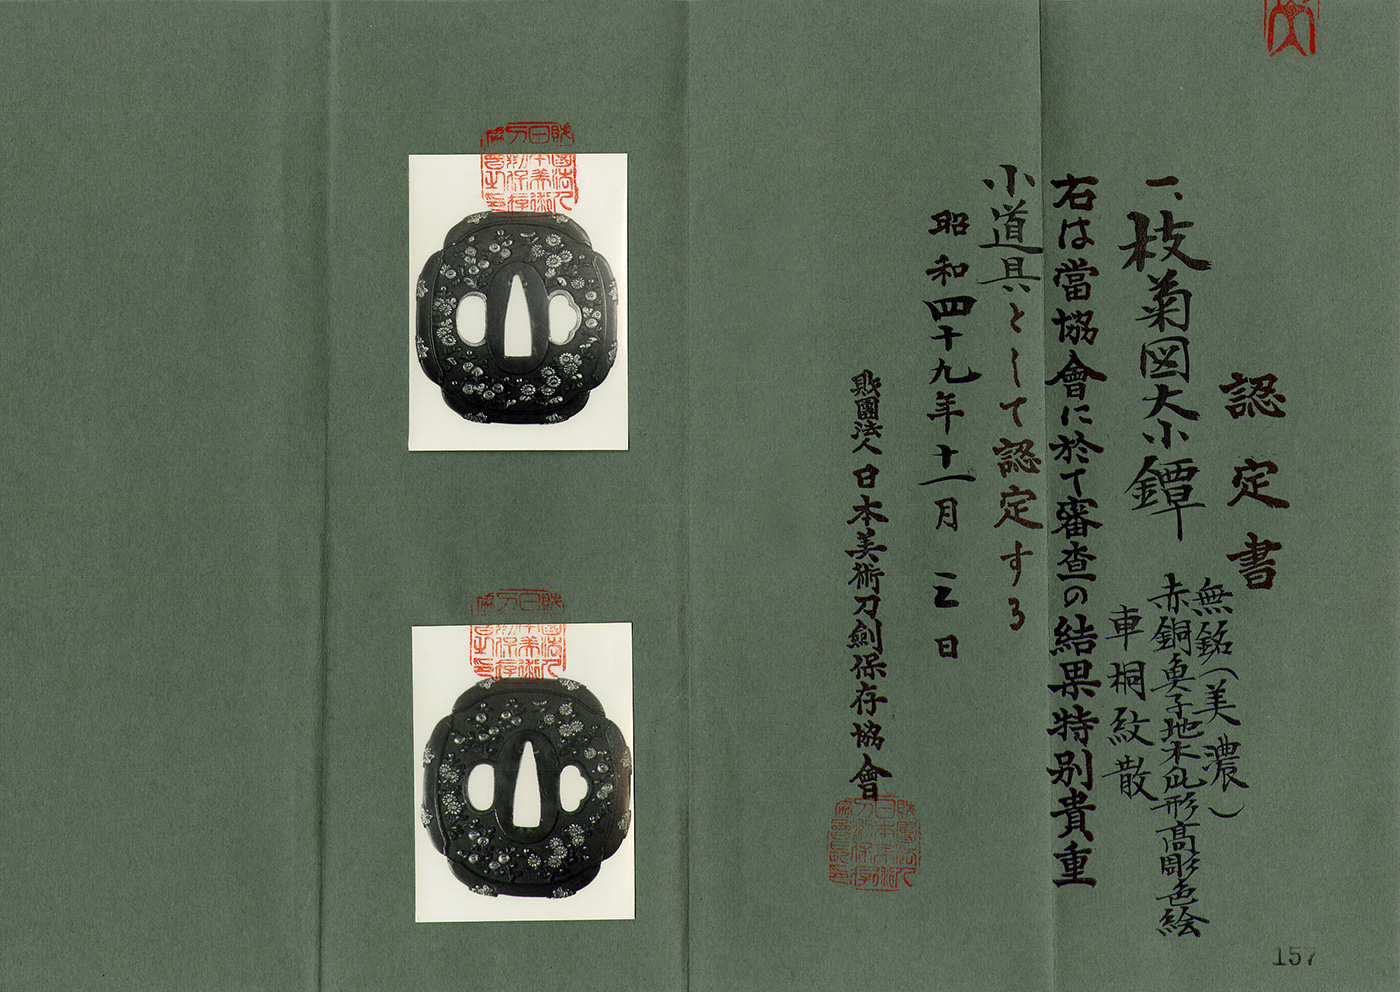 認定書
一、枝菊図大小鐔
無銘(美濃)
赤銅魚子地木瓜形高彫色絵
車桐紋散
右は當協會に於て審査の結果特別貴重
小道具として認定する
昭和四十九年十一月三日
財團法人日本美術刀劍保存協會
157